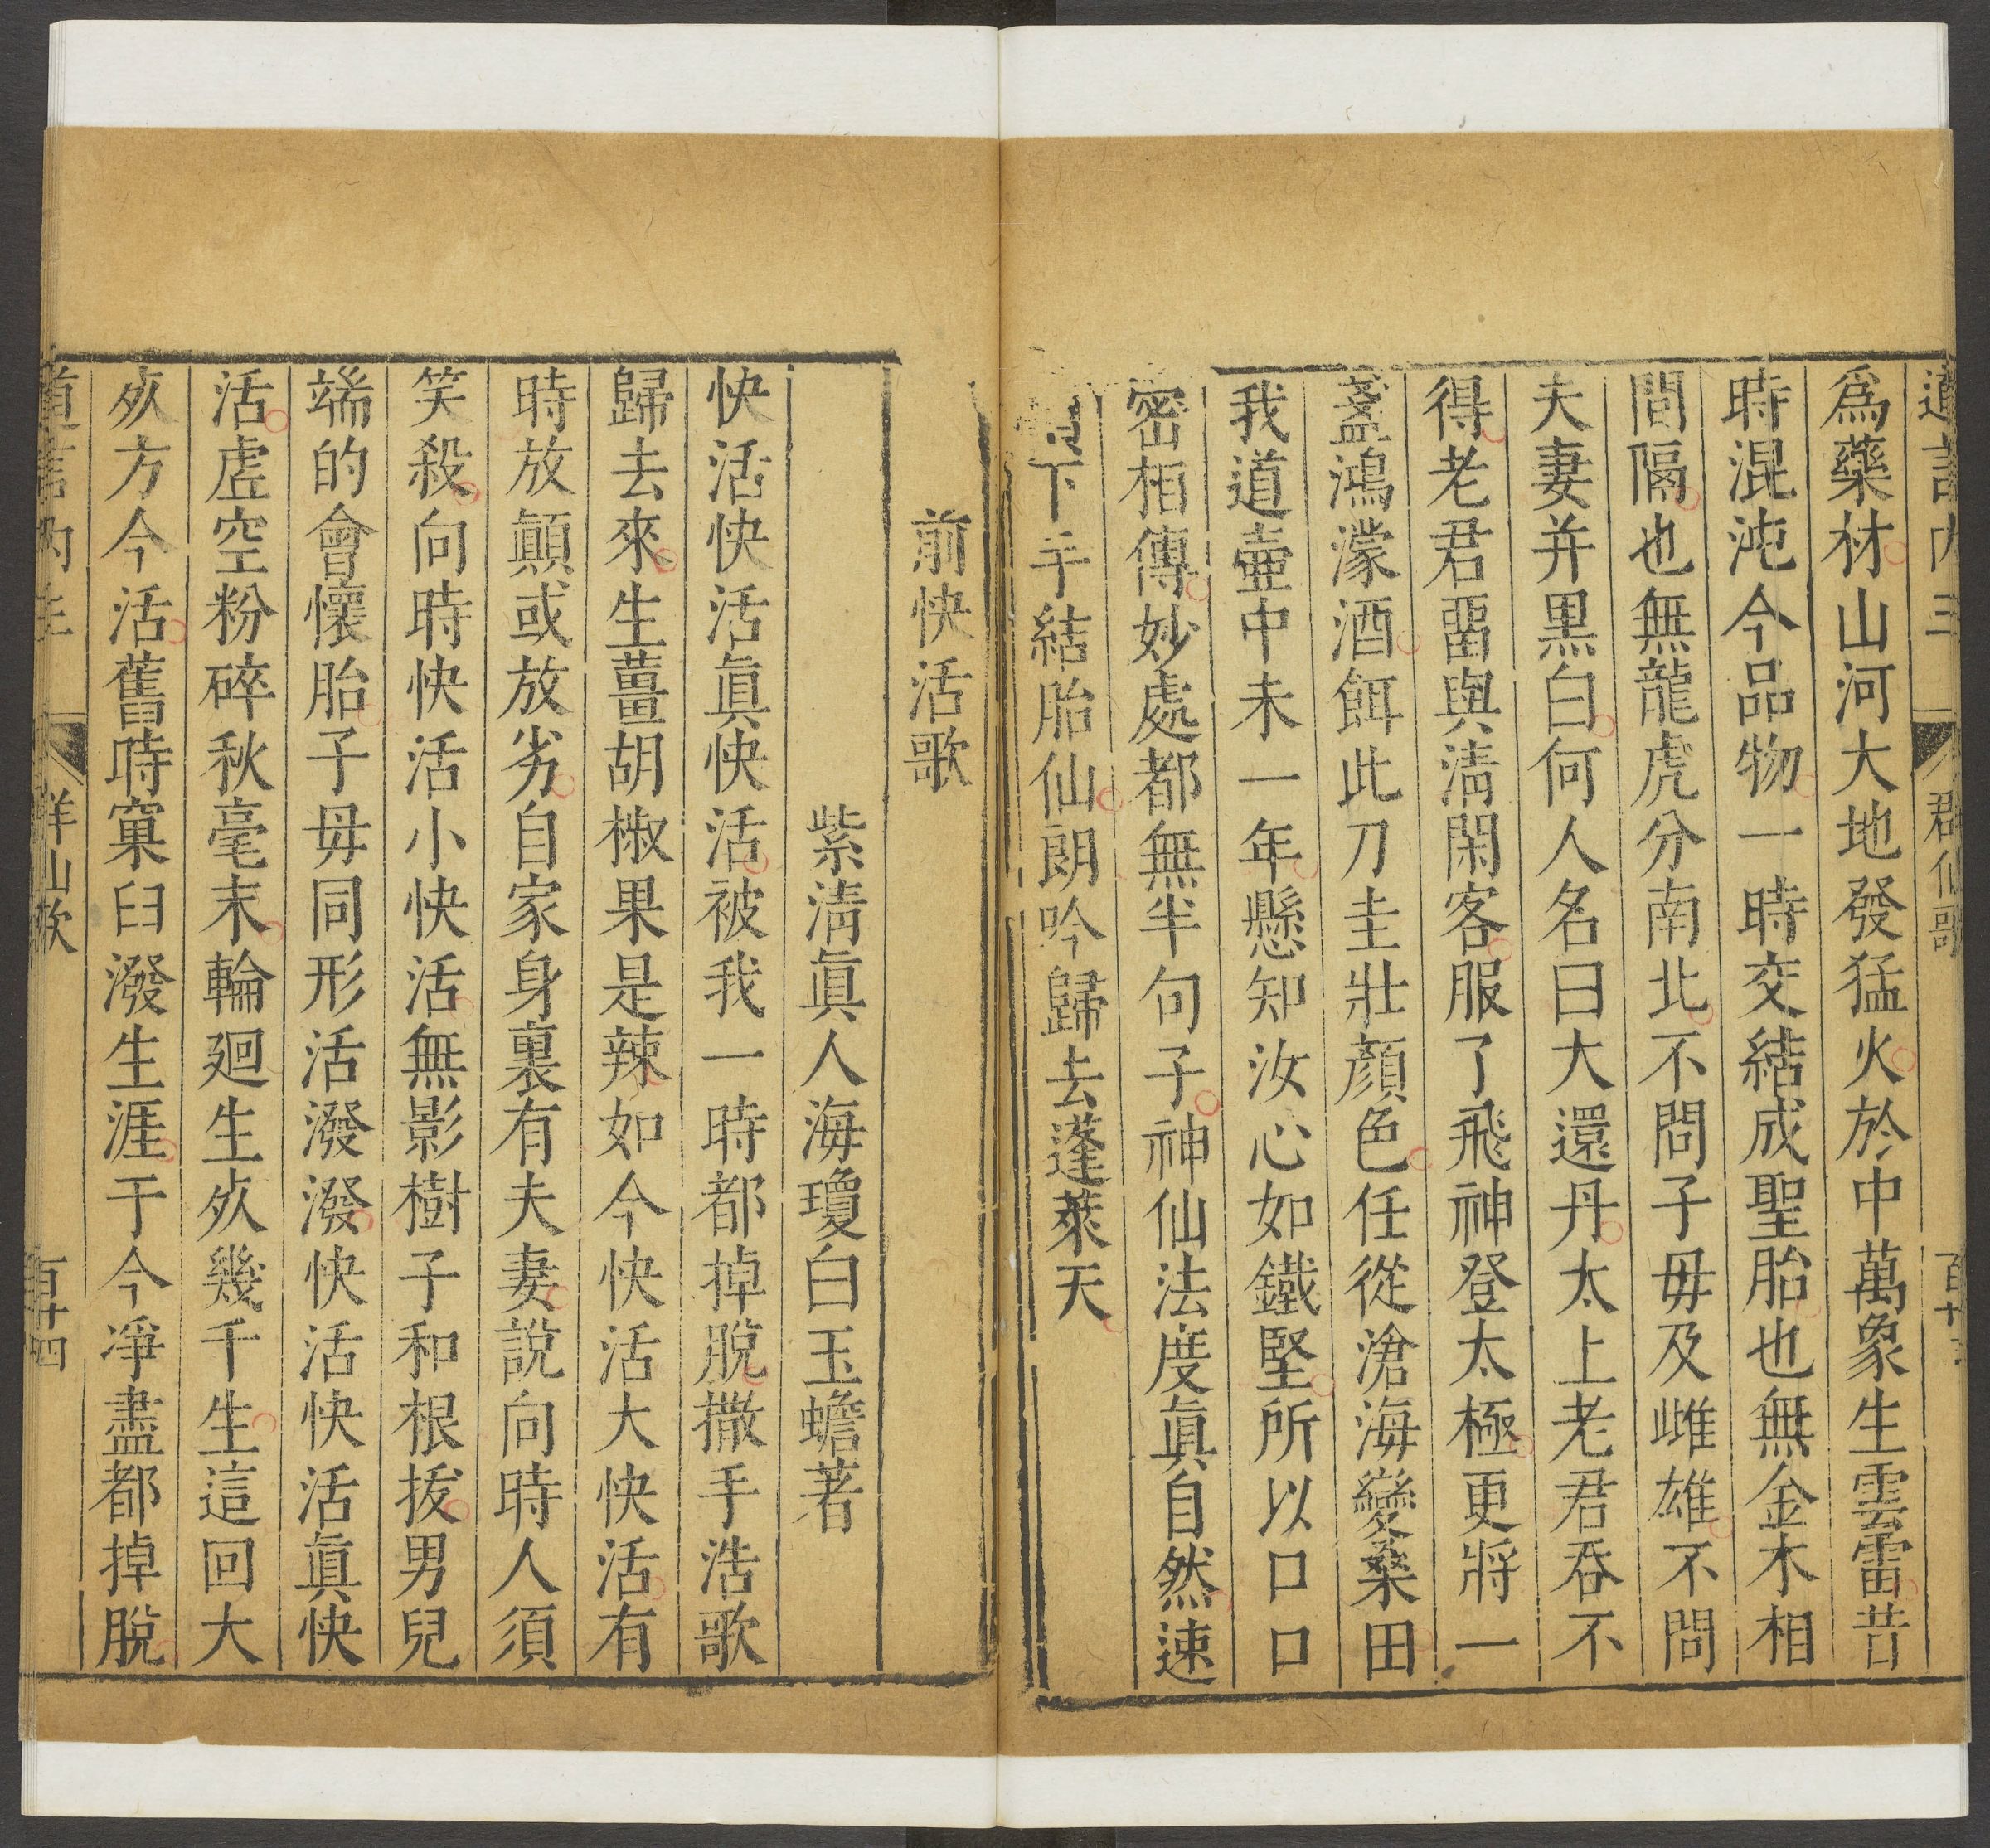 道言內三 群仙歌 百十三
爲藥材山河大地發猛火於中萬象生雲雷昔
時混沌今品物一時交結成聖胎也無金木相
間隔也無龍虎分南北不問子毋及雌雄不問
夫妻并黒白何人名曰大還丹太上老君吞不
得老君畱與淸閑客服了飛神登太極更將一
盞鴻濛酒餌此刀圭壯顏色任從滄海變桑田
我道壷中未一年懸知汝心如鐵堅所以口口
密相傳妙處都無半句子神仙法度眞自然速
下手結胎仙朗吟歸去蓬萊天
前快活歌
紫淸眞人海瓊白玉蟾著
快活快活眞快活被我一時都掉脫撒手浩歌
歸去來生薑胡椒果是辣如今快活大快活有
時放顛或放劣自家身裏有夫妻說向時人須
笑殺向時快活小快活無影樹子和根拔男兒
端的會懷胎子毋同形活潑潑快活快活眞快
活虗空粉碎秋毫末輪廻生死幾千生這回大
死方今活舊時窠臼潑生涯于今凈盡都掉脫
道言內 百十四